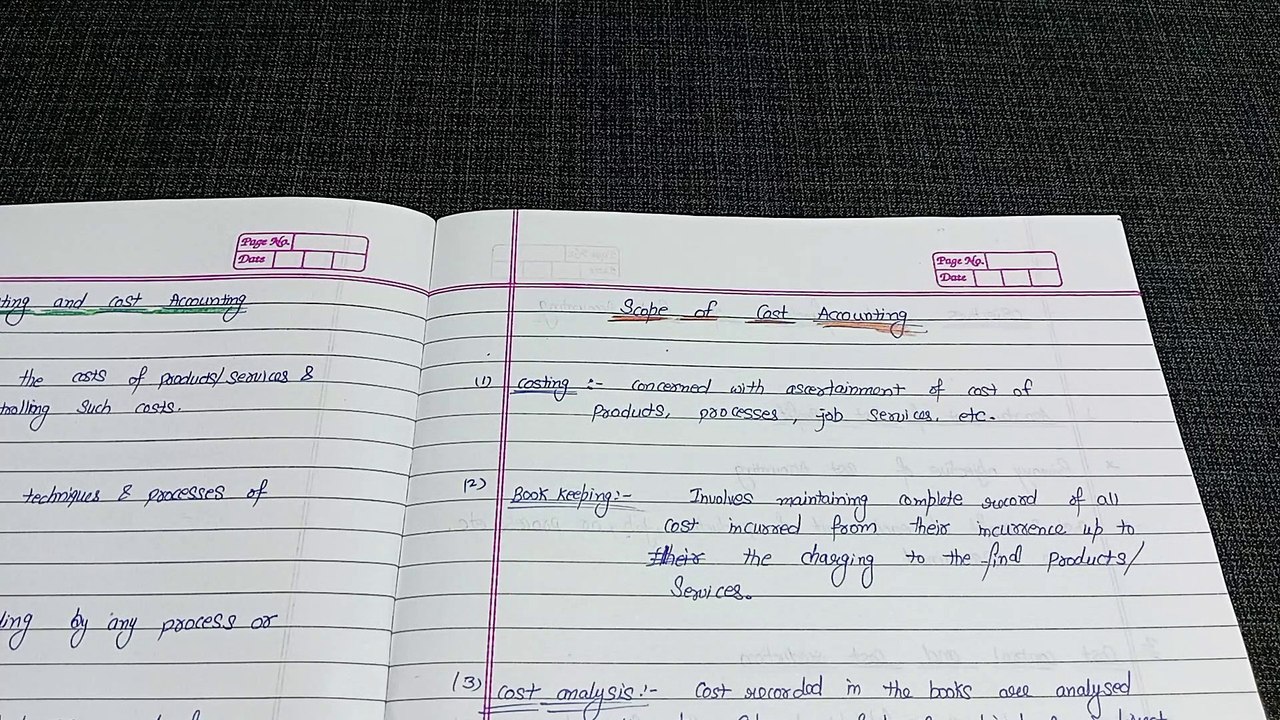 Page No.
Date
ting and cost Accounting
the costs of products/services &
trolling such costs.
techniques & processes of
ling by any process or
Page No.
Date
Scope of Cost Accounting
(1) costing :- concerned with ascertainment of cost of
Products, processes, job services, etc.
(2) Book keeping:- Involves maintaining complete record of all
cost incurred from their incurrence up to
their the charging to the find Products/
Services.
(3) Cost analysis:- Cost recorded in the books are analysed